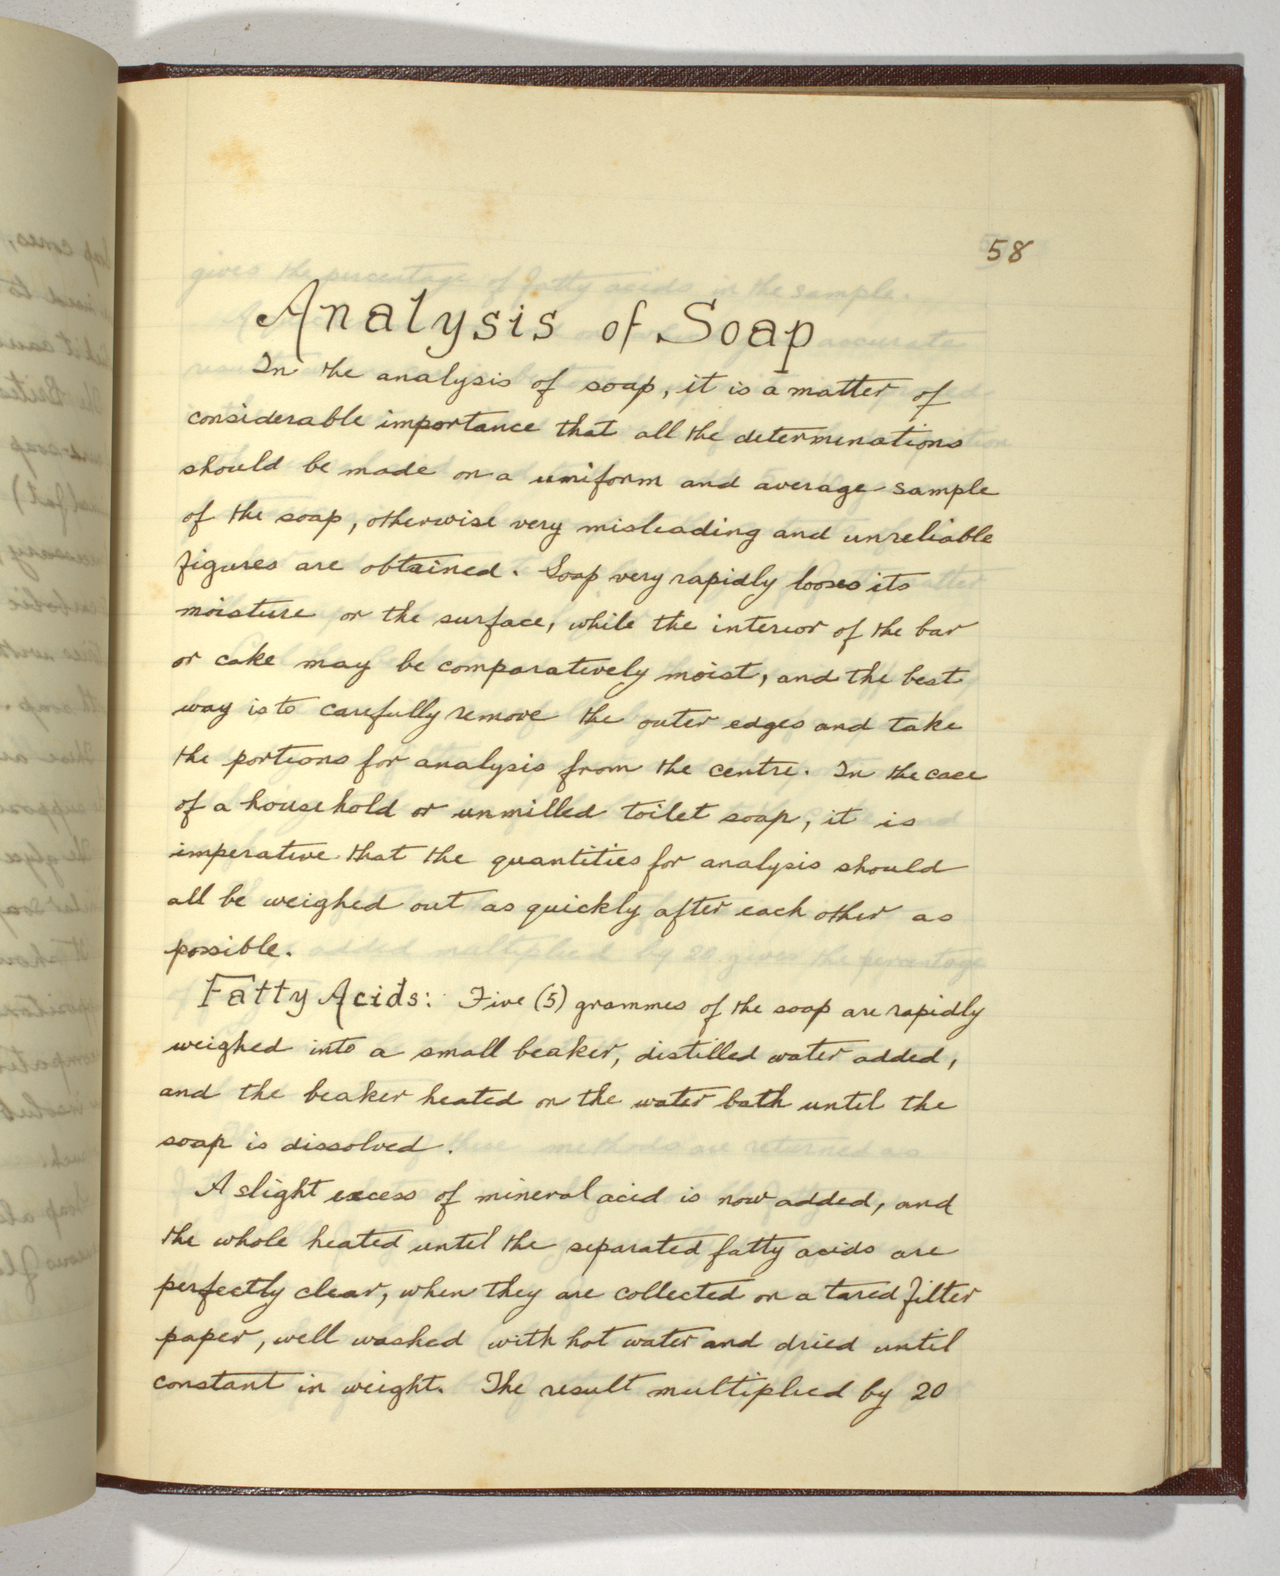 58
Analysis of Soap
In the analysis of soap, it is a matter of
considerable importance that all the determinations
should be made on a uniform and average sample
of the soap, otherwise very misleading and unreliable
figures are obtained. Soap very rapidly looses its
moisture on the surface, while the interior of the bar
or cake may be comparatively moist, and the best
way is to carefully remove the outer edges and take
the portions for analysis from the centre. In the case
of a household or unmilled toilet soap, it is
imperative that the quantities for analysis should
all be weighed out as quickly after each other as
possible.
Fatty Acids: Five (5) grammes of the soap are rapidly
weighed into a small beaker, distilled water added,
and the beaker heated on the water bath until the
soap is dissolved.
A slight excess of mineral acid is now added, and
the whole heated until the separated fatty acids are
perfectly clear, when they are collected on a tared filter
paper, well washed with hot water and dried until
constant in weight. The result multiplied by 20